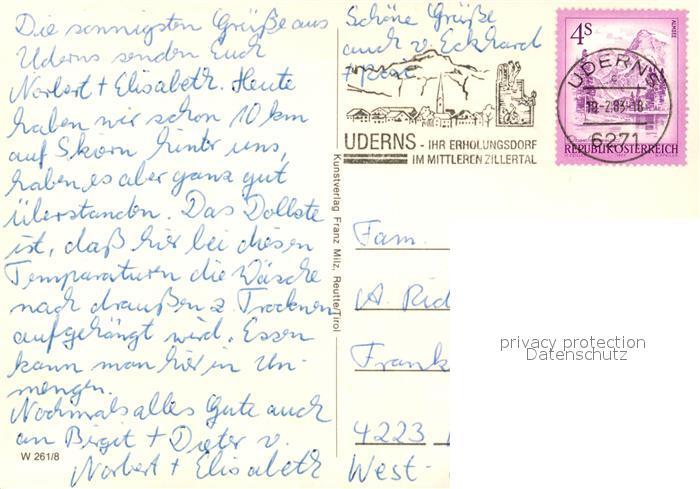 Die sonnigsten Grüße aus
Uderns senden Euch
Norbert + Elisabeth. Heute
haben wir schon 10 km
auf Skiern hinter uns,
haben es aber ganz gut
überstanden. Das Dollste
ist, daß hier bei diesen
Temperaturen die Wäsche
nach draußen z. Trocknen
aufgehängt wird. Essen
kann man hier in Un-
mengen.
Nochmals alles Gute auch
an Birgit + Dieter v.
Norbert + Elisabeth
W 261/8
Kunstverlag Franz Milz, Reutte/Tirol
Schöne Grüße
auch v. Eckhard
UDERNS - IHR ERHOLUNGSDORF
IM MITTLEREN ZILLERTAL
UDERNS
6271
4S
ALMSEE
REPUBLIK ÖSTERREICH
Fam.
A. Rid
Frank
4223
West-
privacy protection
Datenschutz